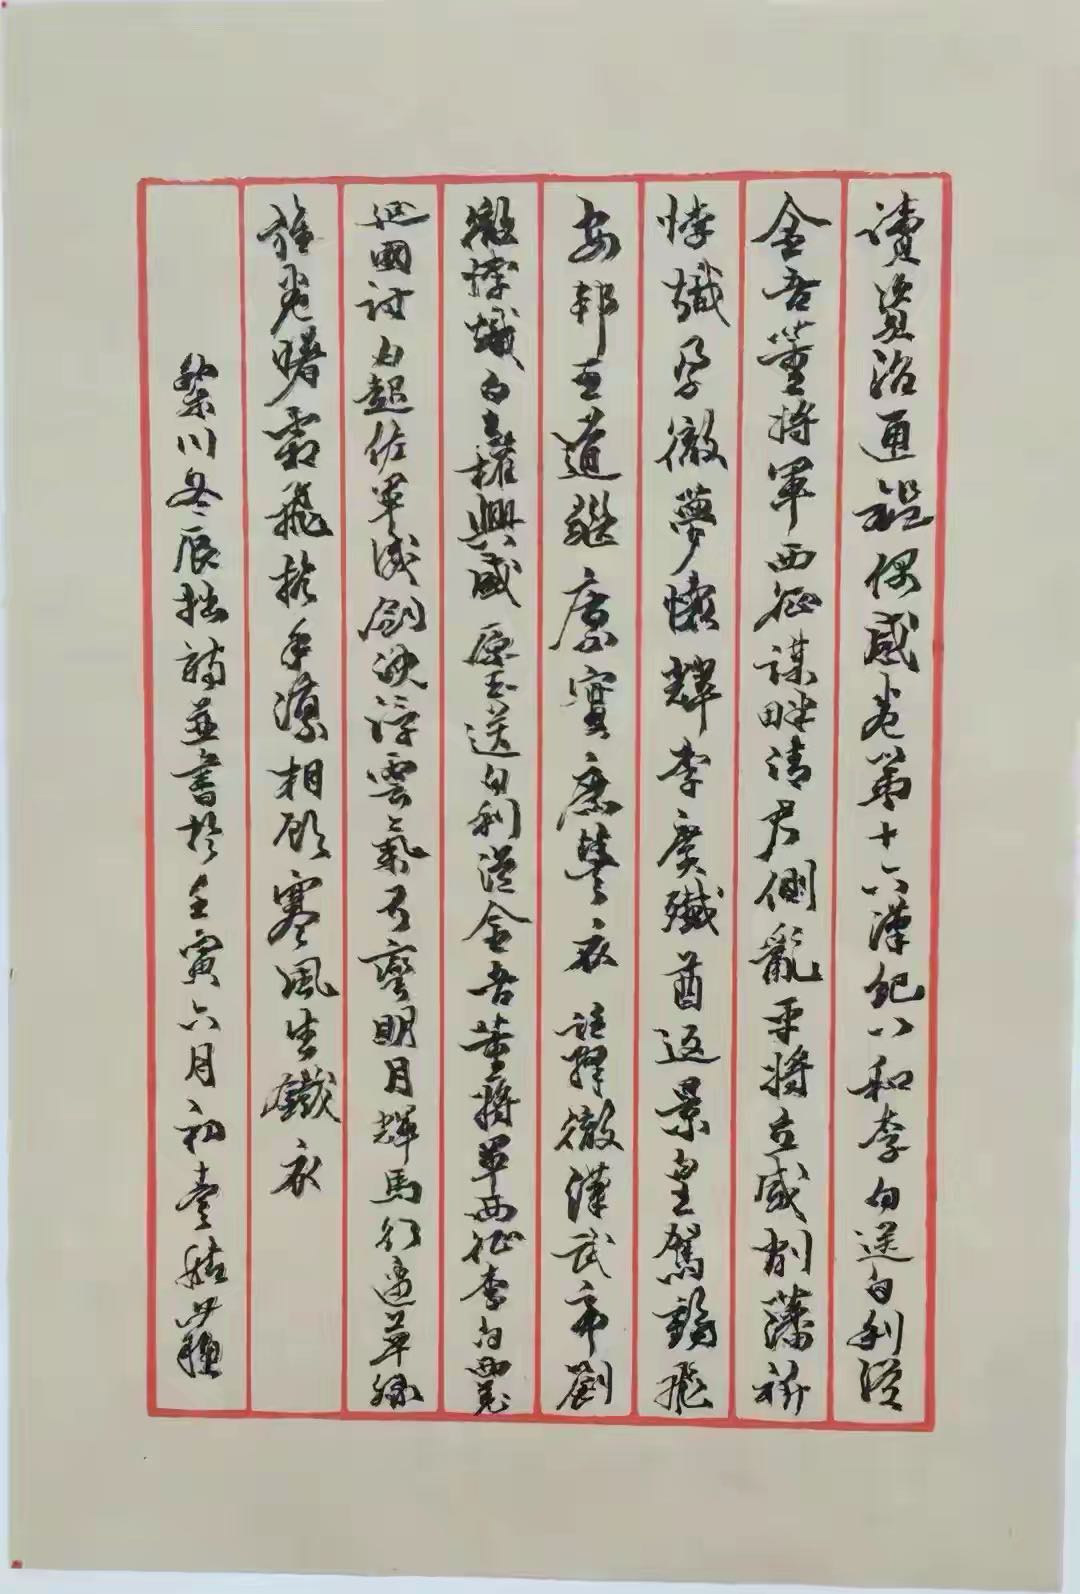 讀資治通鑑偶感卷第十六漢紀八和李白送白利從
金吾董將軍西征謀畔清君側亂平將立威削藩祈
悖熾孕徹夢懷輝李廣殲酋返景皇駕鶴飛
安邦王道繼廩實庶其衣註釋徹漢武帝劉
徹悖熾白蓮興盛原玉送白利從金吾董將軍西征李白西羌
延國討白起佐軍威劍決浮雲氣弓彎明月輝馬行邊草綠
旌卷曙霜飛抗手凜相顧寒風生鐵衣
黎川冬辰拙詩並書於壬寅六月初壹